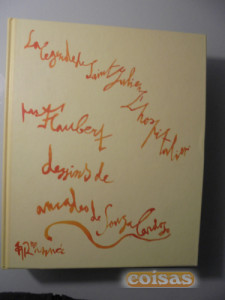 La légende de Saint Julien
L'hospitalier
par Flaubert
dessins de
amadeo de Souza Cardoso
coisas